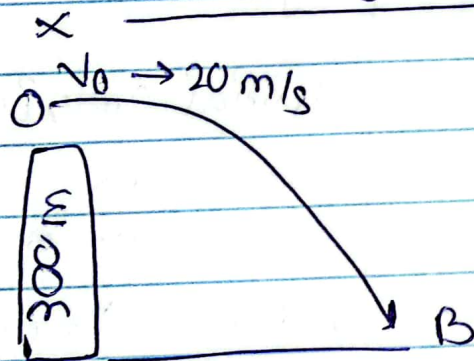 X
V₀ → 20 m/s
O
300 m
B